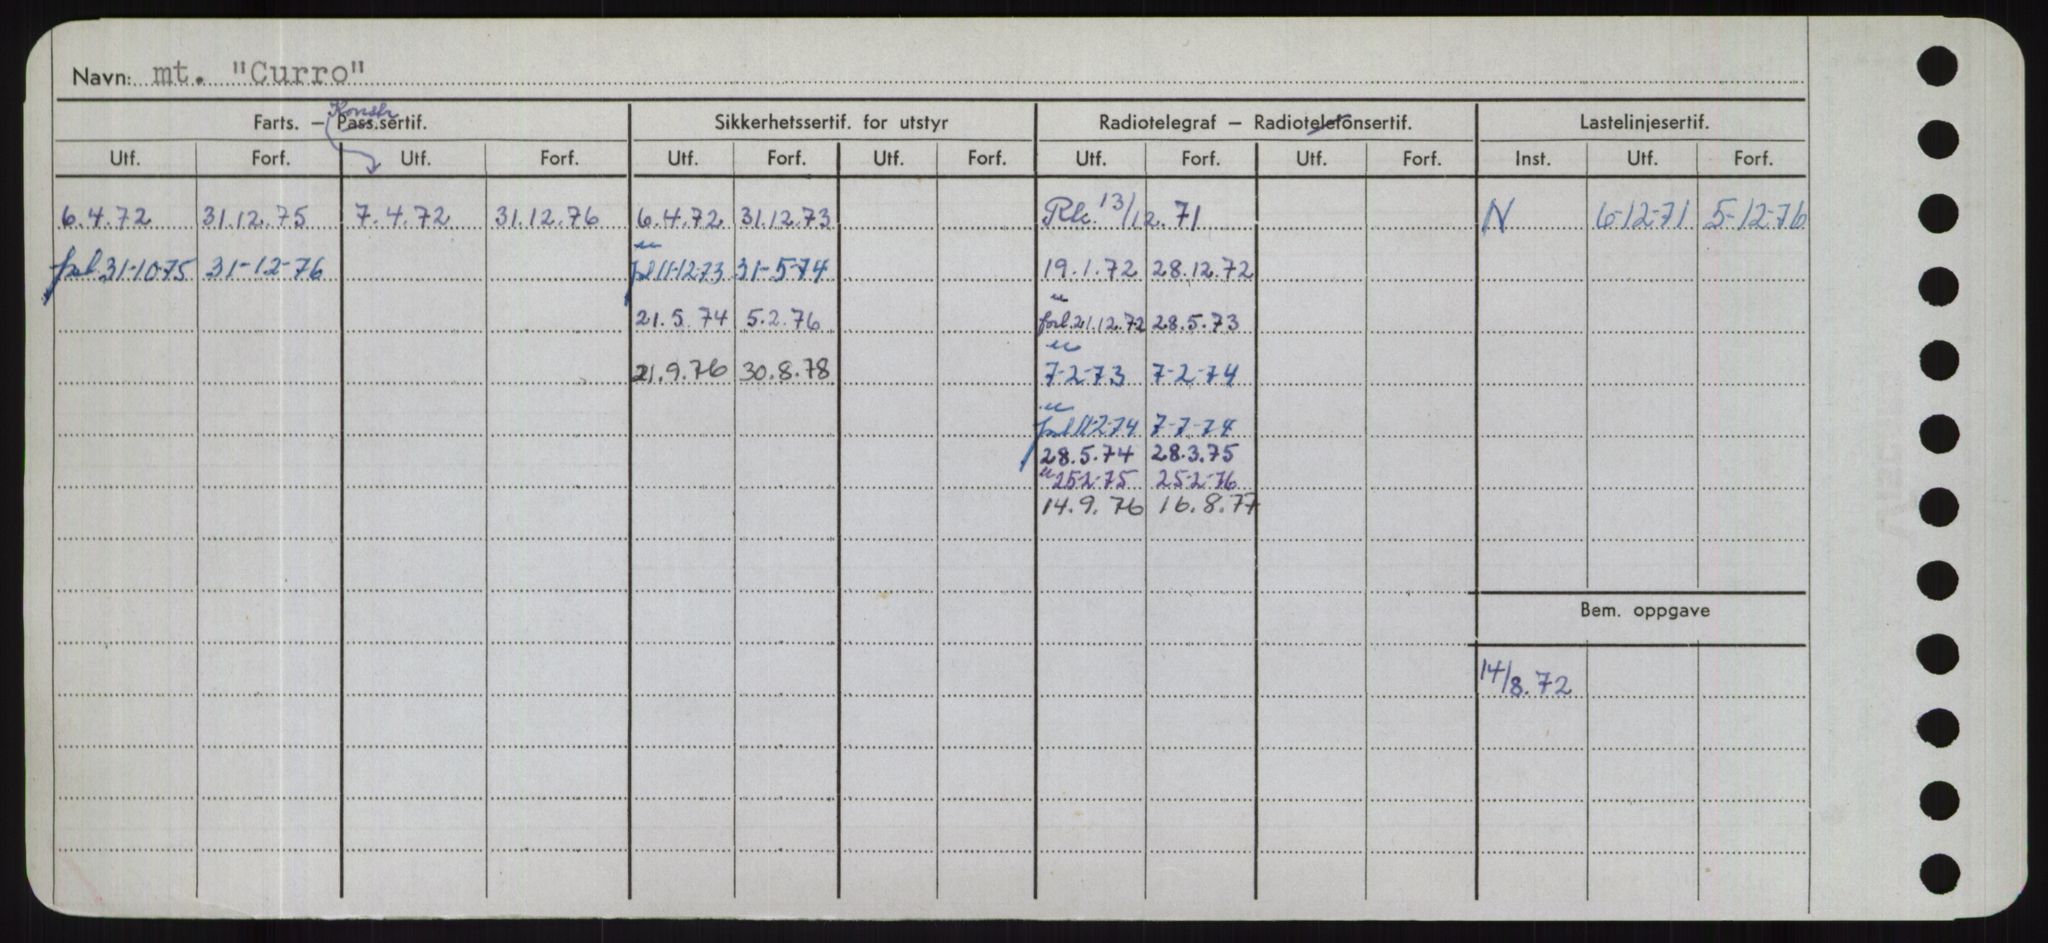 Navn: mt. "Curro"
Konstr
Farts. — Pass.sertif. Sikkerhetssertif. for utstyr Radiotelegraf — Radiotelefonsertif. Lastelinjesertif.
Utf. Forf. Utf. Forf. Utf. Forf. Utf. Forf. Utf. Forf. Utf. Forf. Inst. Utf. Forf.
6.4.72 31.12.75 7.4.72 31.12.76 6.4.72 31.12.73 13/12.71 N 6-12-71 5-12-76
31-10-75 31-12-76 11-12-73 31-5-74 19.1.72 28.12.72
21.5.74 5.2.76 forl 21.12.72 28.5.73
21.9.76 30.8.78 7-2-73 7-2-74
11-2-74 7-7-74
28.5.74 28.3.75
25-2-75 25-2-76
14.9.76 16.8.77
Bem. oppgave
14/8.72